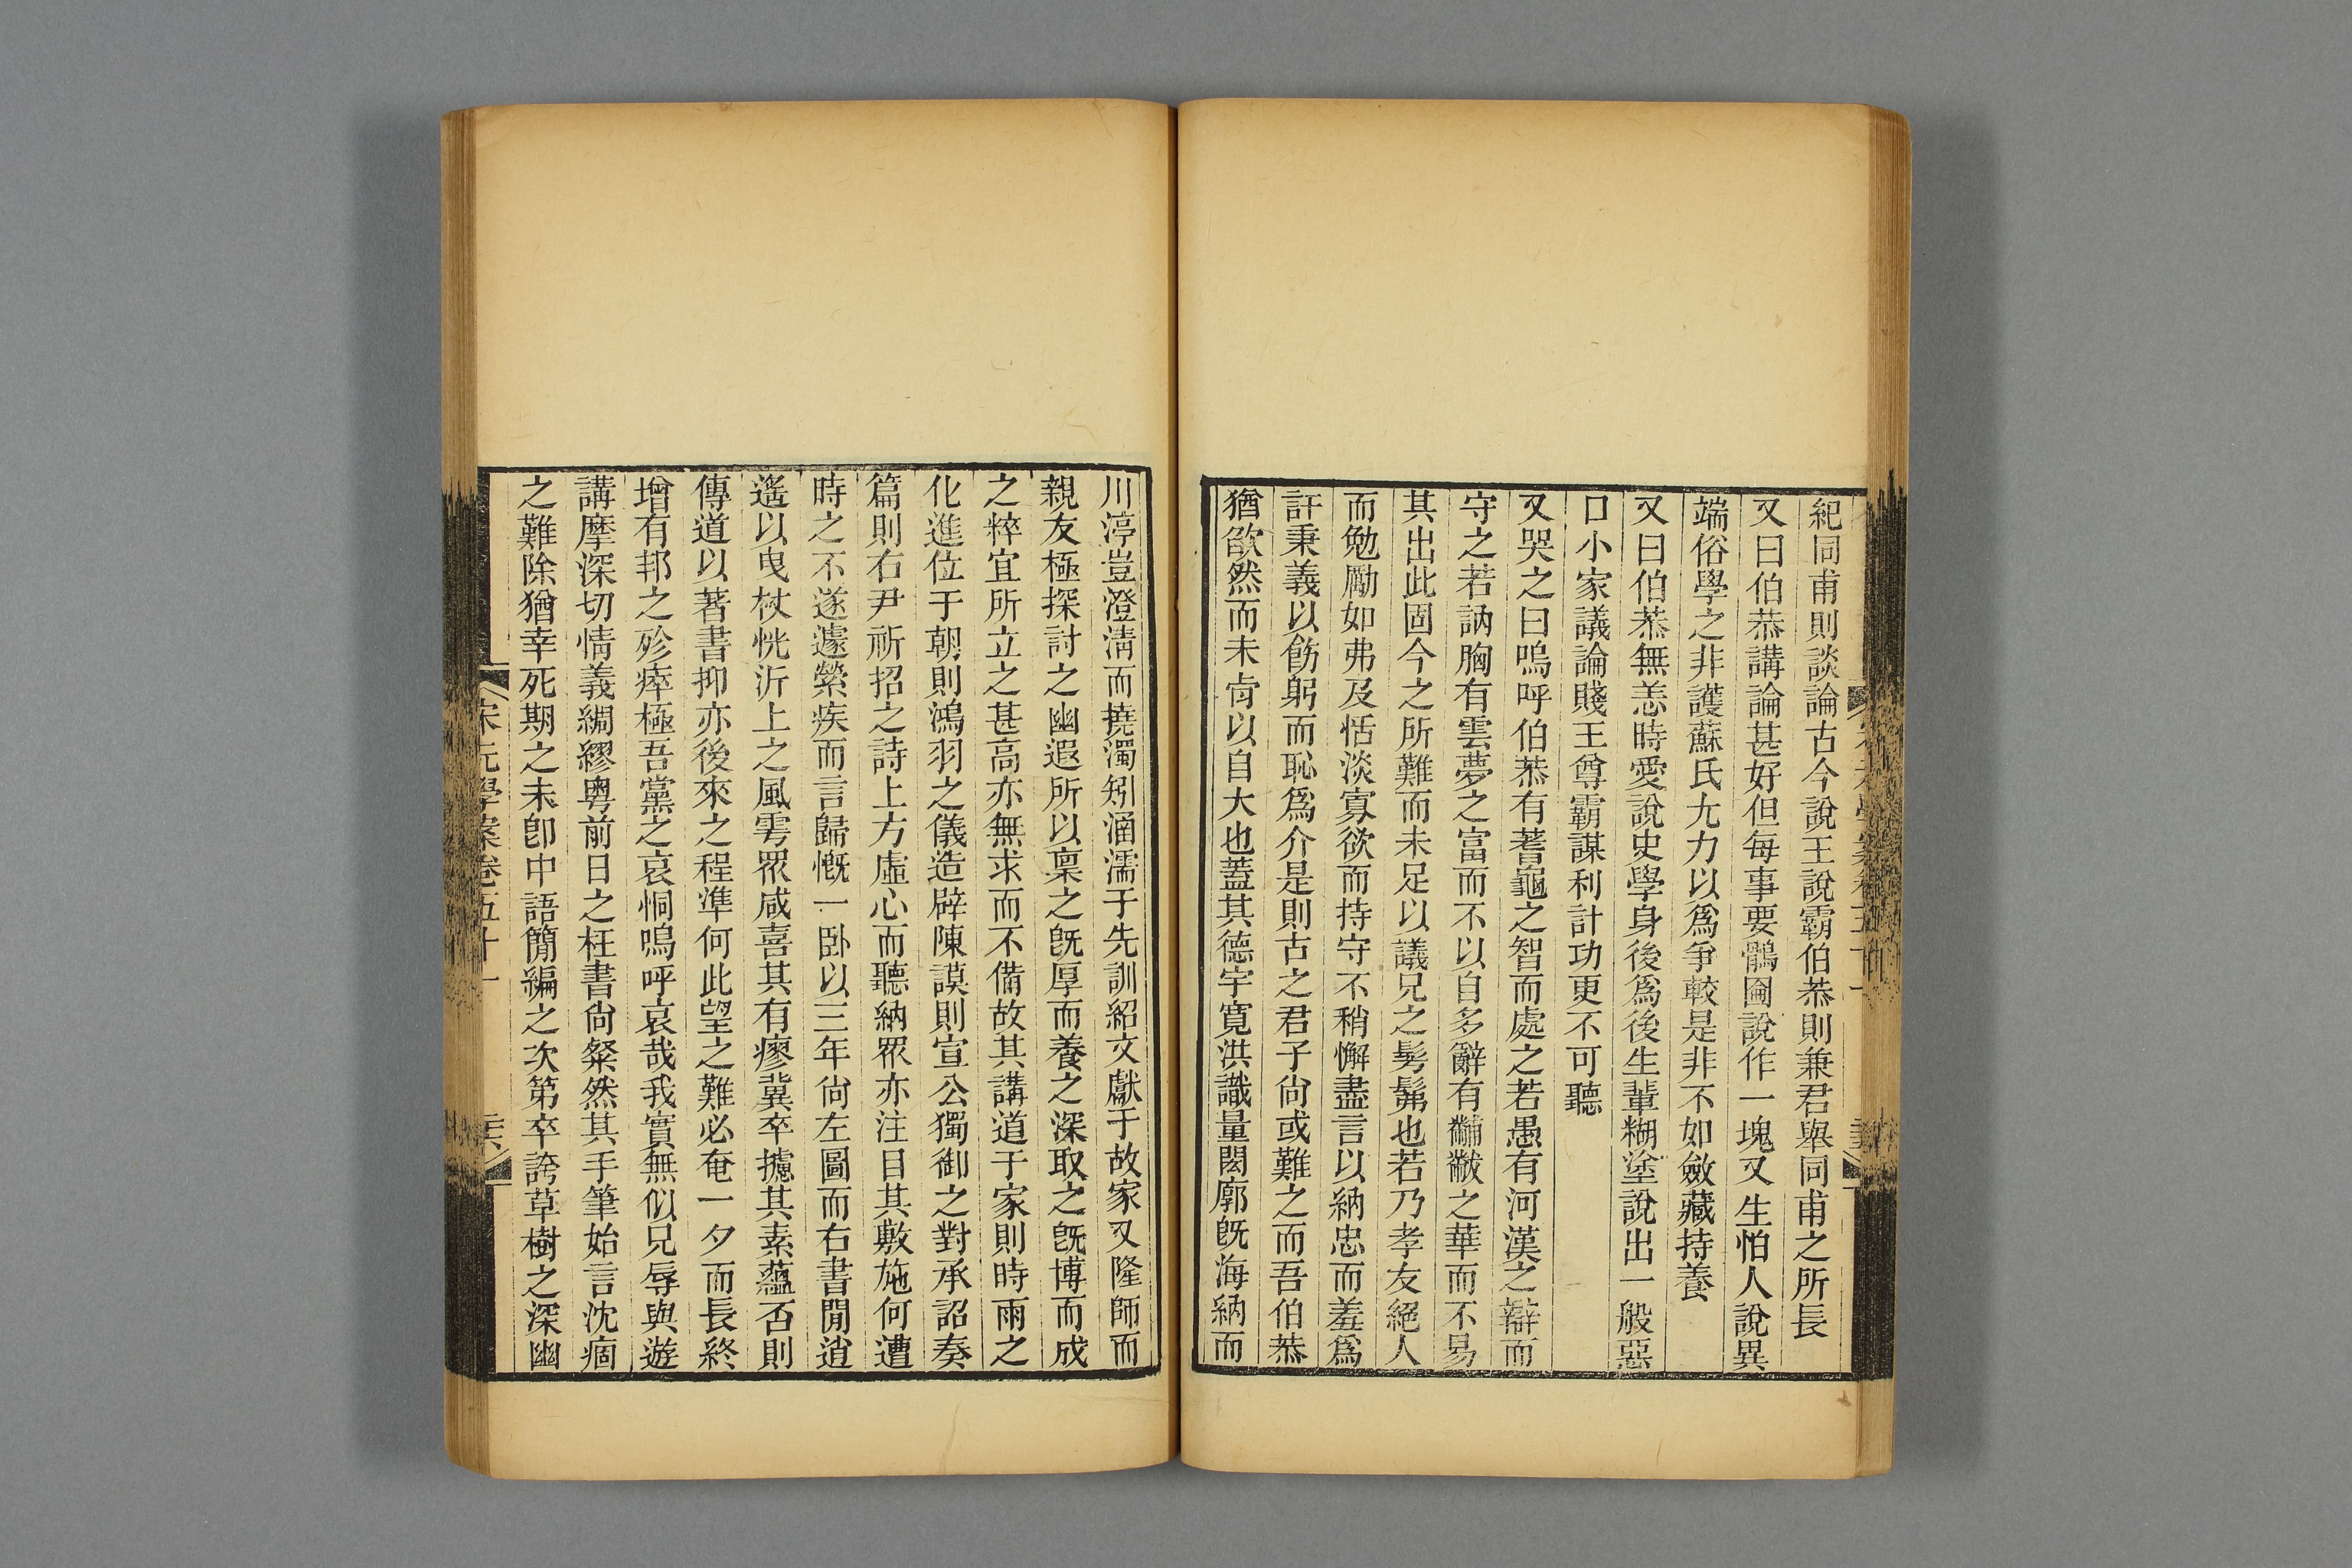 紀同甫則談論古今說王說霸伯恭則兼君舉同甫之所長
又曰伯恭講論甚好但每事要鶻圇說作一塊又生怕人說異
端俗學之非護蘇氏尢力以爲爭較是非不如斂藏持養
又曰伯恭無恙時愛說史學身後爲後生輩糊塗說出一般惡
口小家議論賤王尊霸謀利計功更不可聽
又哭之曰嗚呼伯恭有蓍龜之智而處之若愚有河漢之辯而
守之若訥胸有雲夢之富而不以自多辭有黼黻之華而不易
其出此固今之所難而未足以議兄之髣髴也若乃孝友絕人
而勉勵如弗及恬淡寡欲而持守不稍懈盡言以納忠而羞爲
訐秉義以飭躬而恥爲介是則古之君子尙或難之而吾伯恭
猶欿然而未肯以自大也蓋其德宇寬洪識量閎廓旣海納而
川渟豈澄淸而撓濁矧涵濡于先訓紹文獻于故家又隆師而
親友極探討之幽遐所以稟之旣厚而養之深取之旣博而成
之粹宜所立之甚高亦無求而不備故其講道于家則時雨之
化進位于朝則鴻羽之儀造辟陳謨則宣公獨御之對承詔奏
篇則右尹祈招之詩上方虛心而聽納眾亦注目其敷施何遭
時之不遂遽縈疾而言歸慨一臥以三年尙左圖而右書閒逍
遙以曳杖恍沂上之風雩眾咸喜其有瘳冀卒攄其素蘊否則
傳道以著書抑亦後來之程準何此望之難必奄一夕而長終
增有邦之殄瘁極吾黨之哀恫嗚呼哀哉我實無似兄辱與遊
講摩深切情義綢繆粵前日之枉書尙粲然其手筆始言沈痼
之難除猶幸死期之未卽中語簡編之次第卒誇草樹之深幽
宋元學案卷五十一